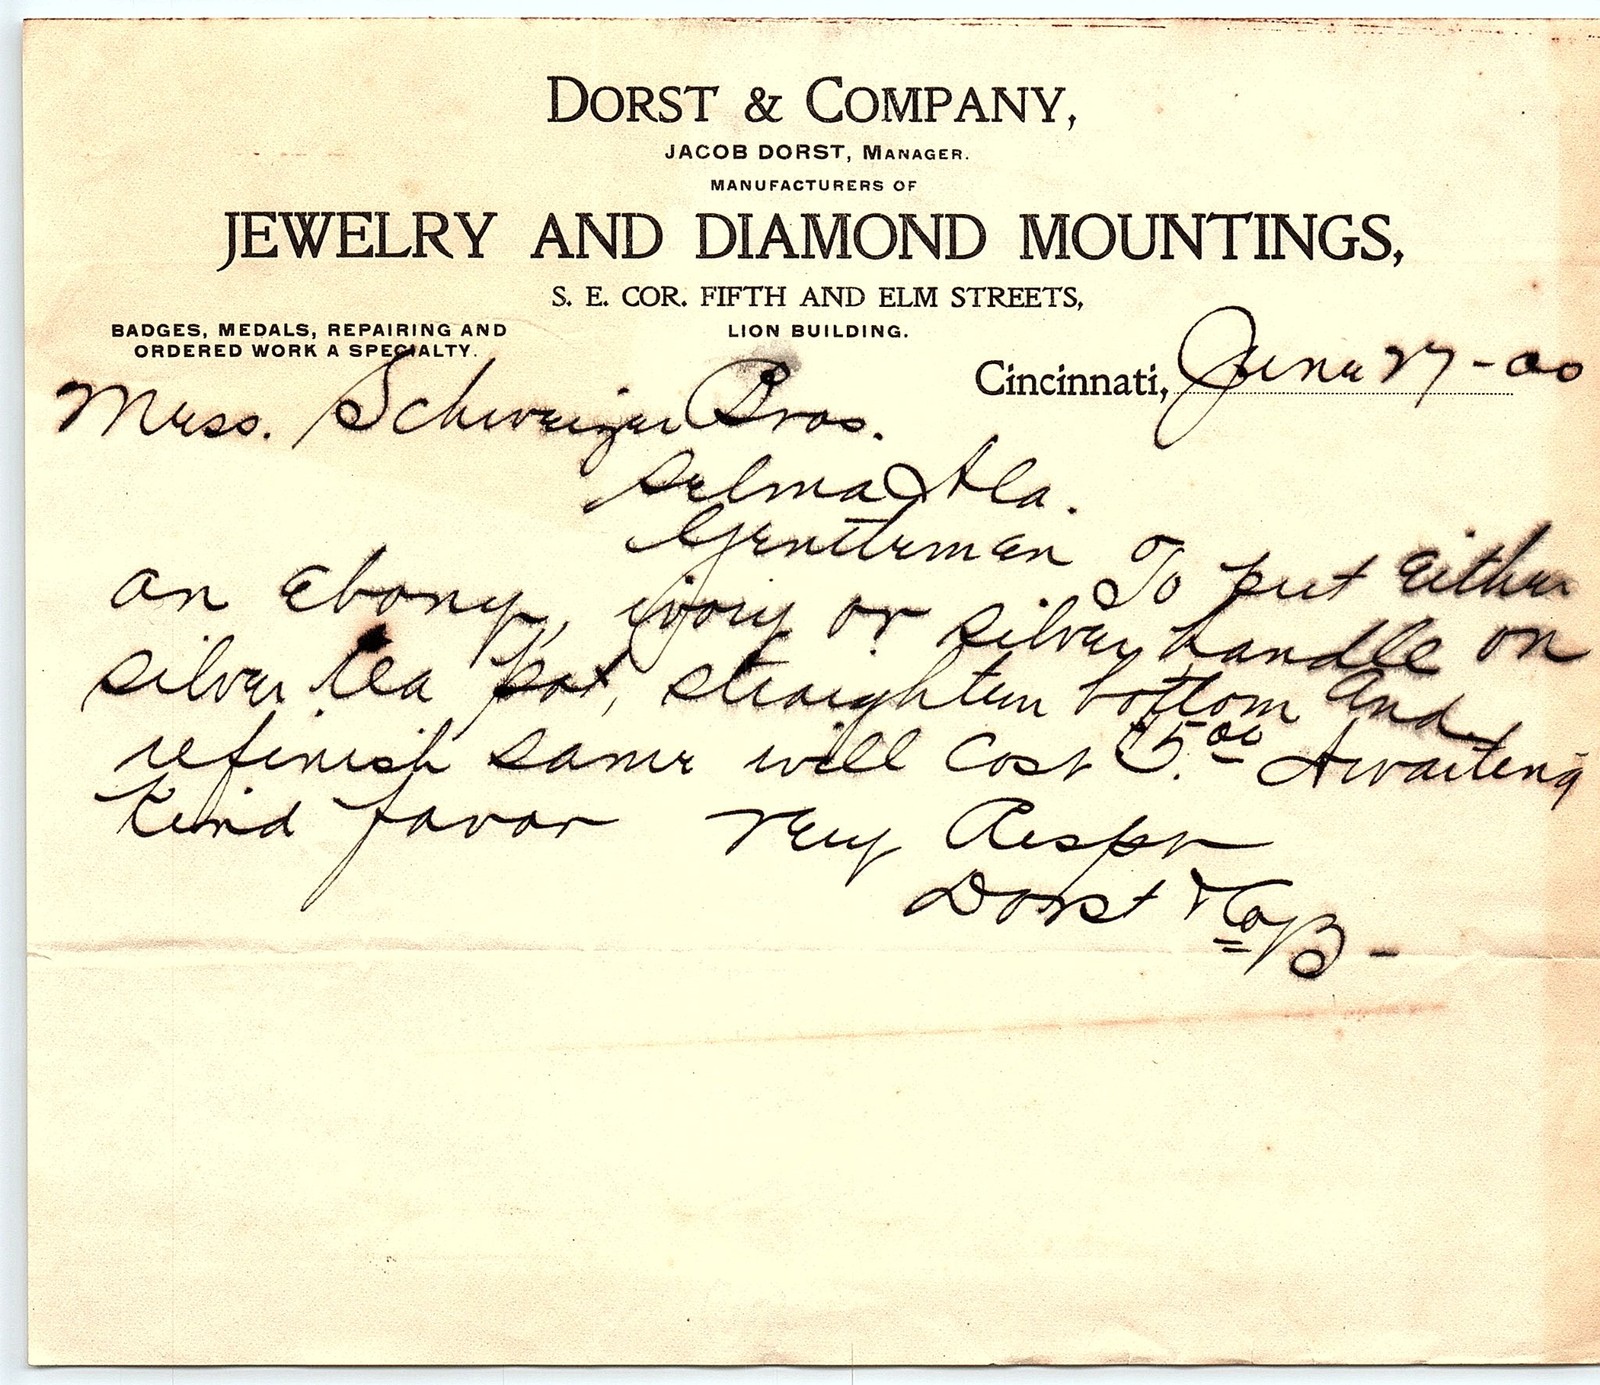 DORST & COMPANY,
JACOB DORST, MANAGER.
MANUFACTURERS OF
JEWELRY AND DIAMOND MOUNTINGS,
S. E. COR. FIFTH AND ELM STREETS,
LION BUILDING.
BADGES, MEDALS, REPAIRING AND
ORDERED WORK A SPECIALTY.
Cincinnati, June 27-00
Mess. Schweizer Bros.
Selma Ala.
Gentlemen To put either
an Ebony, ivory or silver handle on
silver tea pot, straighten bottom and
refinish same will cost $5.00 Awaiting
kind favor Very Respt
Dorst & Co
B-